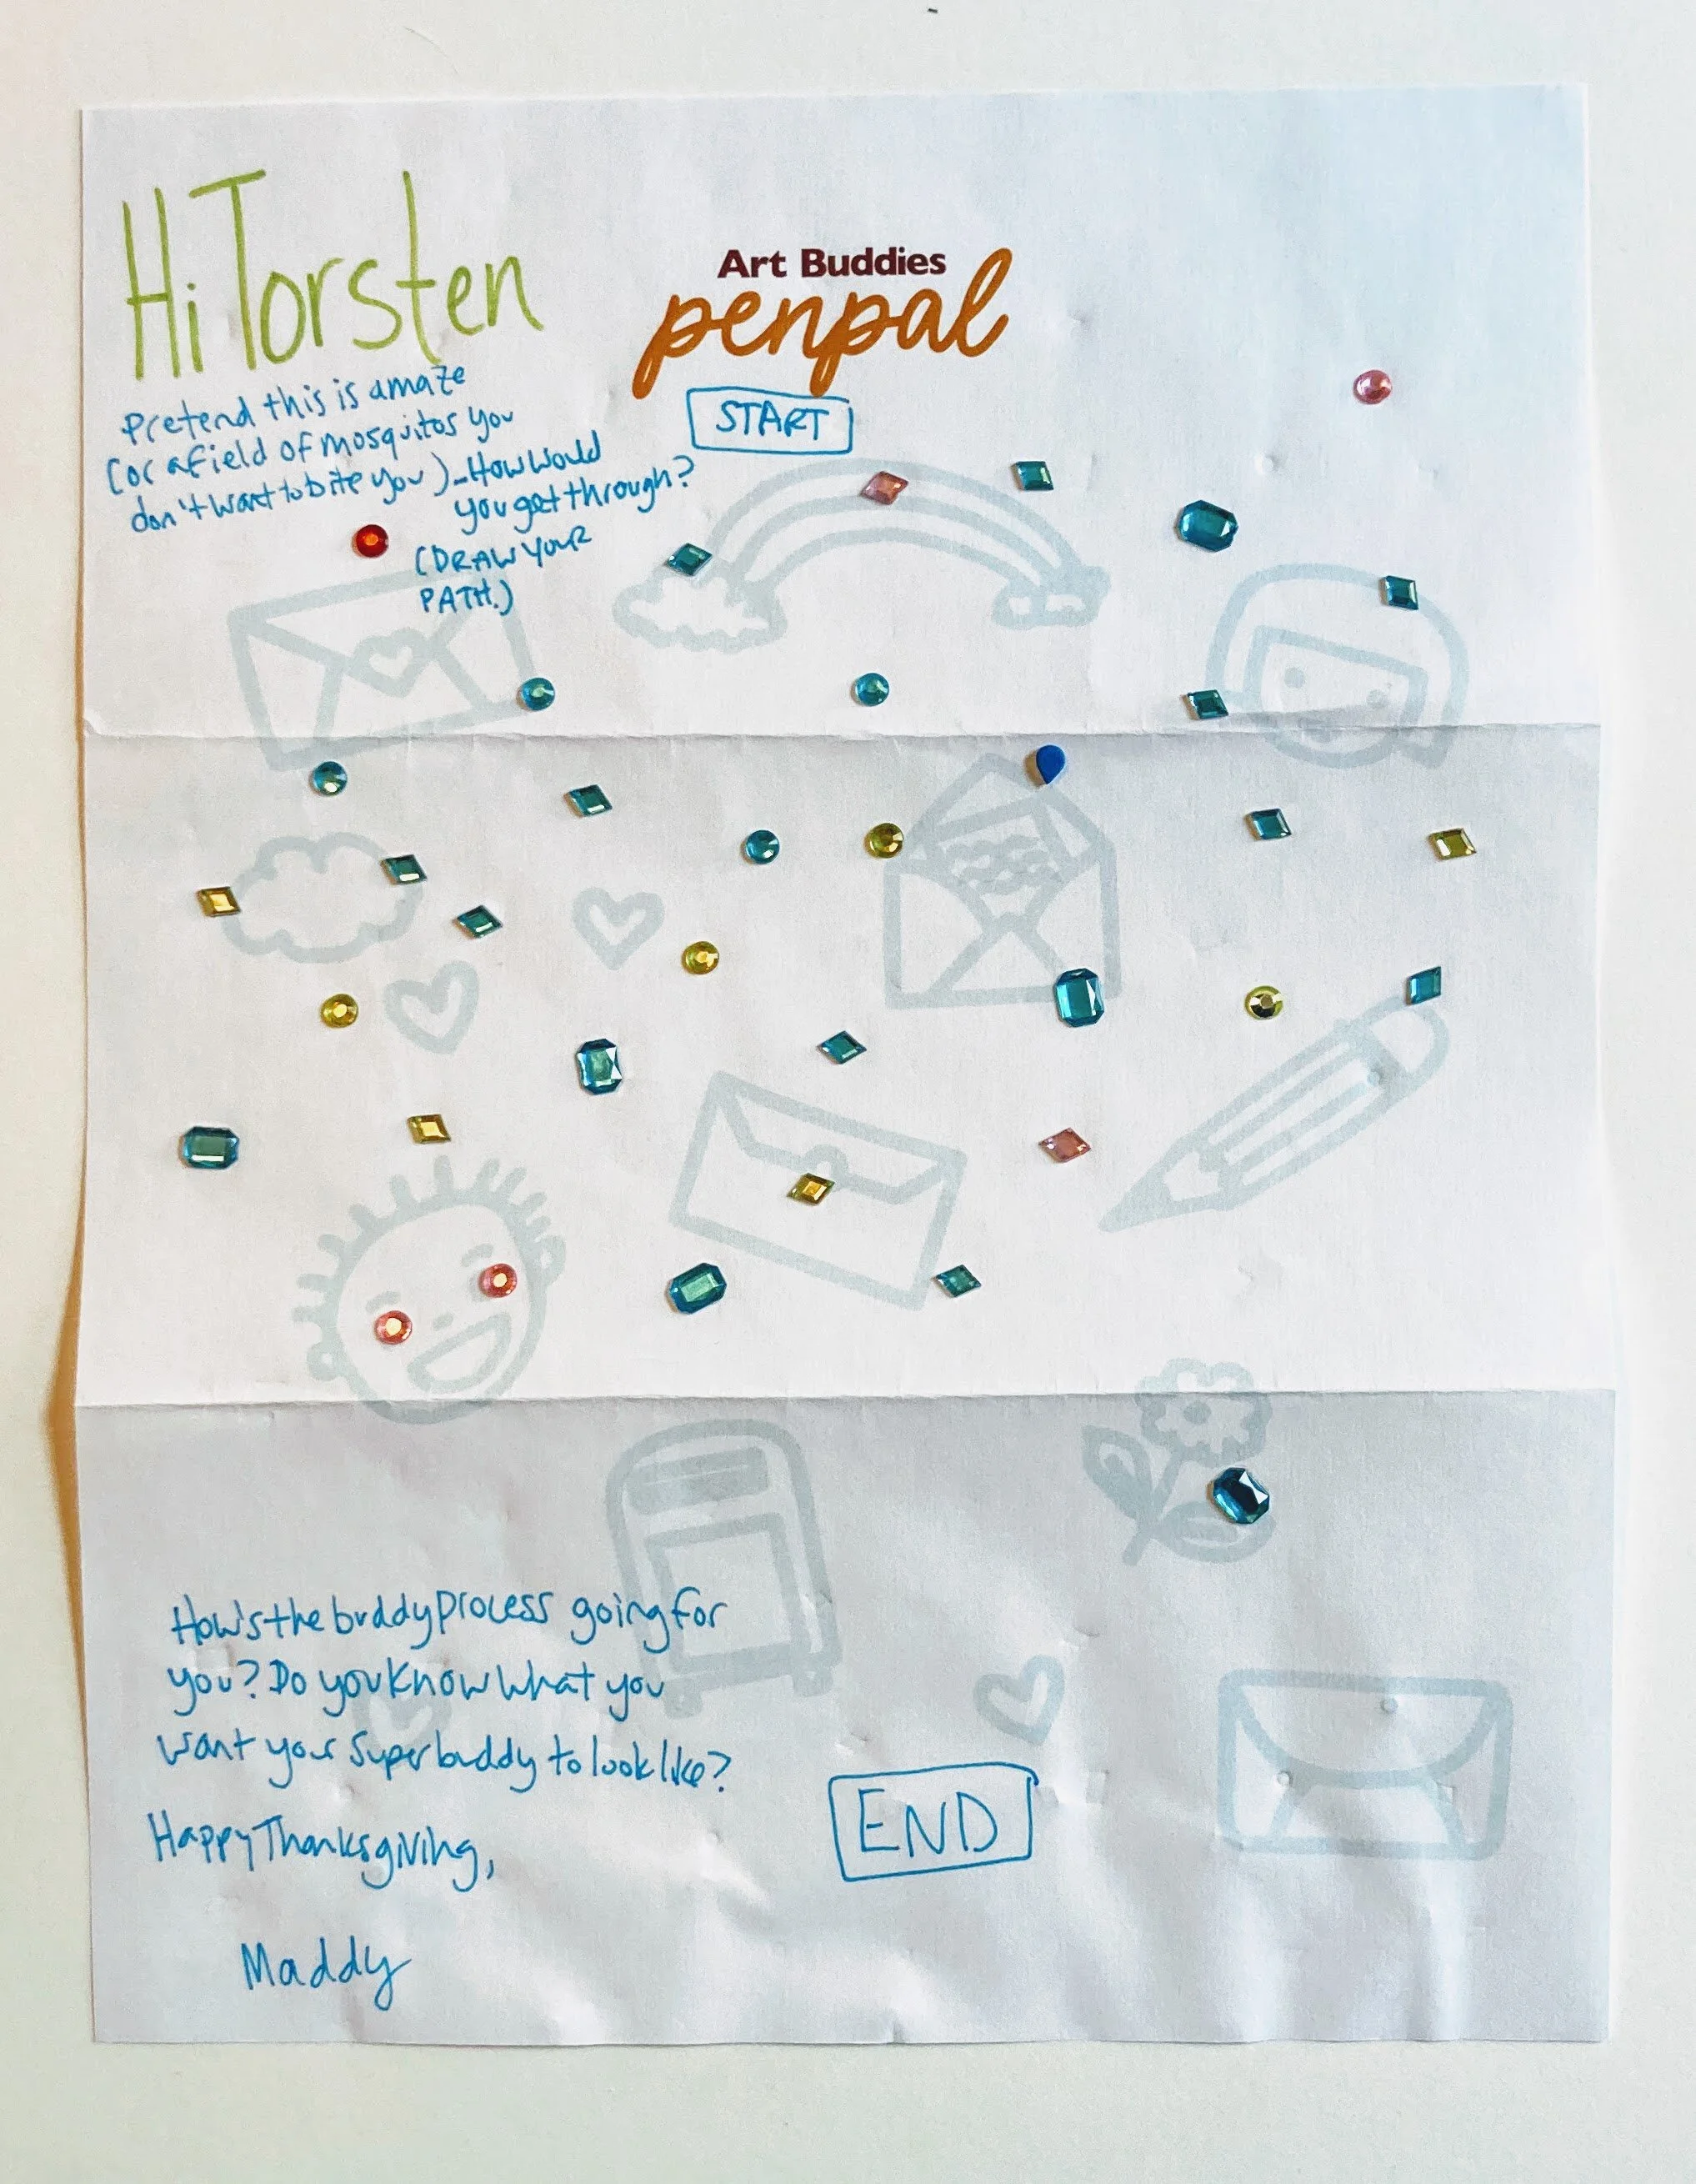 Hi Torsten
Art Buddies
penpal
START
Pretend this is a maze
(or a field of mosquitos you
don't want to bite you) - How would
you get through?
(DRAW YOUR
PATH.)
How's the buddy process going for
you? Do you know what you
want your Superbuddy to look like?
Happy Thanksgiving,
Maddy
END